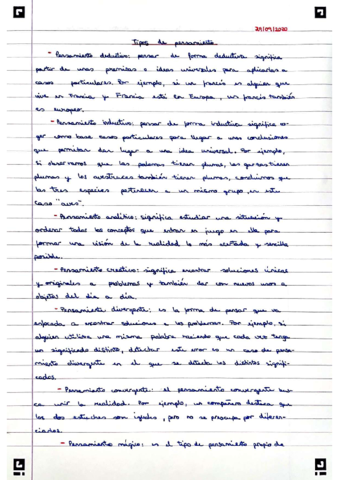 29/09/2020
Tipos de pensamiento
- Pensamiento deductivo: pensar de forma deductiva significa
partir de unas premisas e ideas universales para aplicarlas a
casos particulares. Por ejemplo, si un francés es alguien que
vive en Francia y Francia está en Europa, un francés también
es europeo.
- Pensamiento inductivo: pensar de forma inductiva significa co-
ger como base casos particulares para llegar a unas conclusiones
que permitan dar lugar a una idea universal. Por ejemplo,
si observamos que las palomas tienen plumas, los gansos tienen
plumas y las avestruces también tienen plumas, concluimos que
las tres especies pertenecen a un mismo grupo, en este
caso "aves".
- Pensamiento analítico: significa estudiar una situación y
ordenar todos los conceptos que entran en juego en ella para
formar una visión de la realidad lo más acertada y sencilla
posible.
- Pensamiento creativo: significa encontrar soluciones únicas
y originales a problemas y también dar con nuevos usos a
objetos del día a día.
- Pensamiento divergente: es la forma de pensar que va
enfocada a encontrar soluciones a los problemas. Por ejemplo, si
alguien utiliza una misma palabra haciendo que cada vez tenga
un significado distinto, detectar este error es un caso de pensa-
miento divergente en el que se detecta los distintos signifi-
cados.
- Pensamiento convergente: el pensamiento convergente bus-
ca unir la realidad. Por ejemplo, un compañero destaca que
los dos estuches son iguales, pero no se preocupa por diferen-
ciarlos.
- Pensamiento mágico: es el tipo de pensamiento propio de